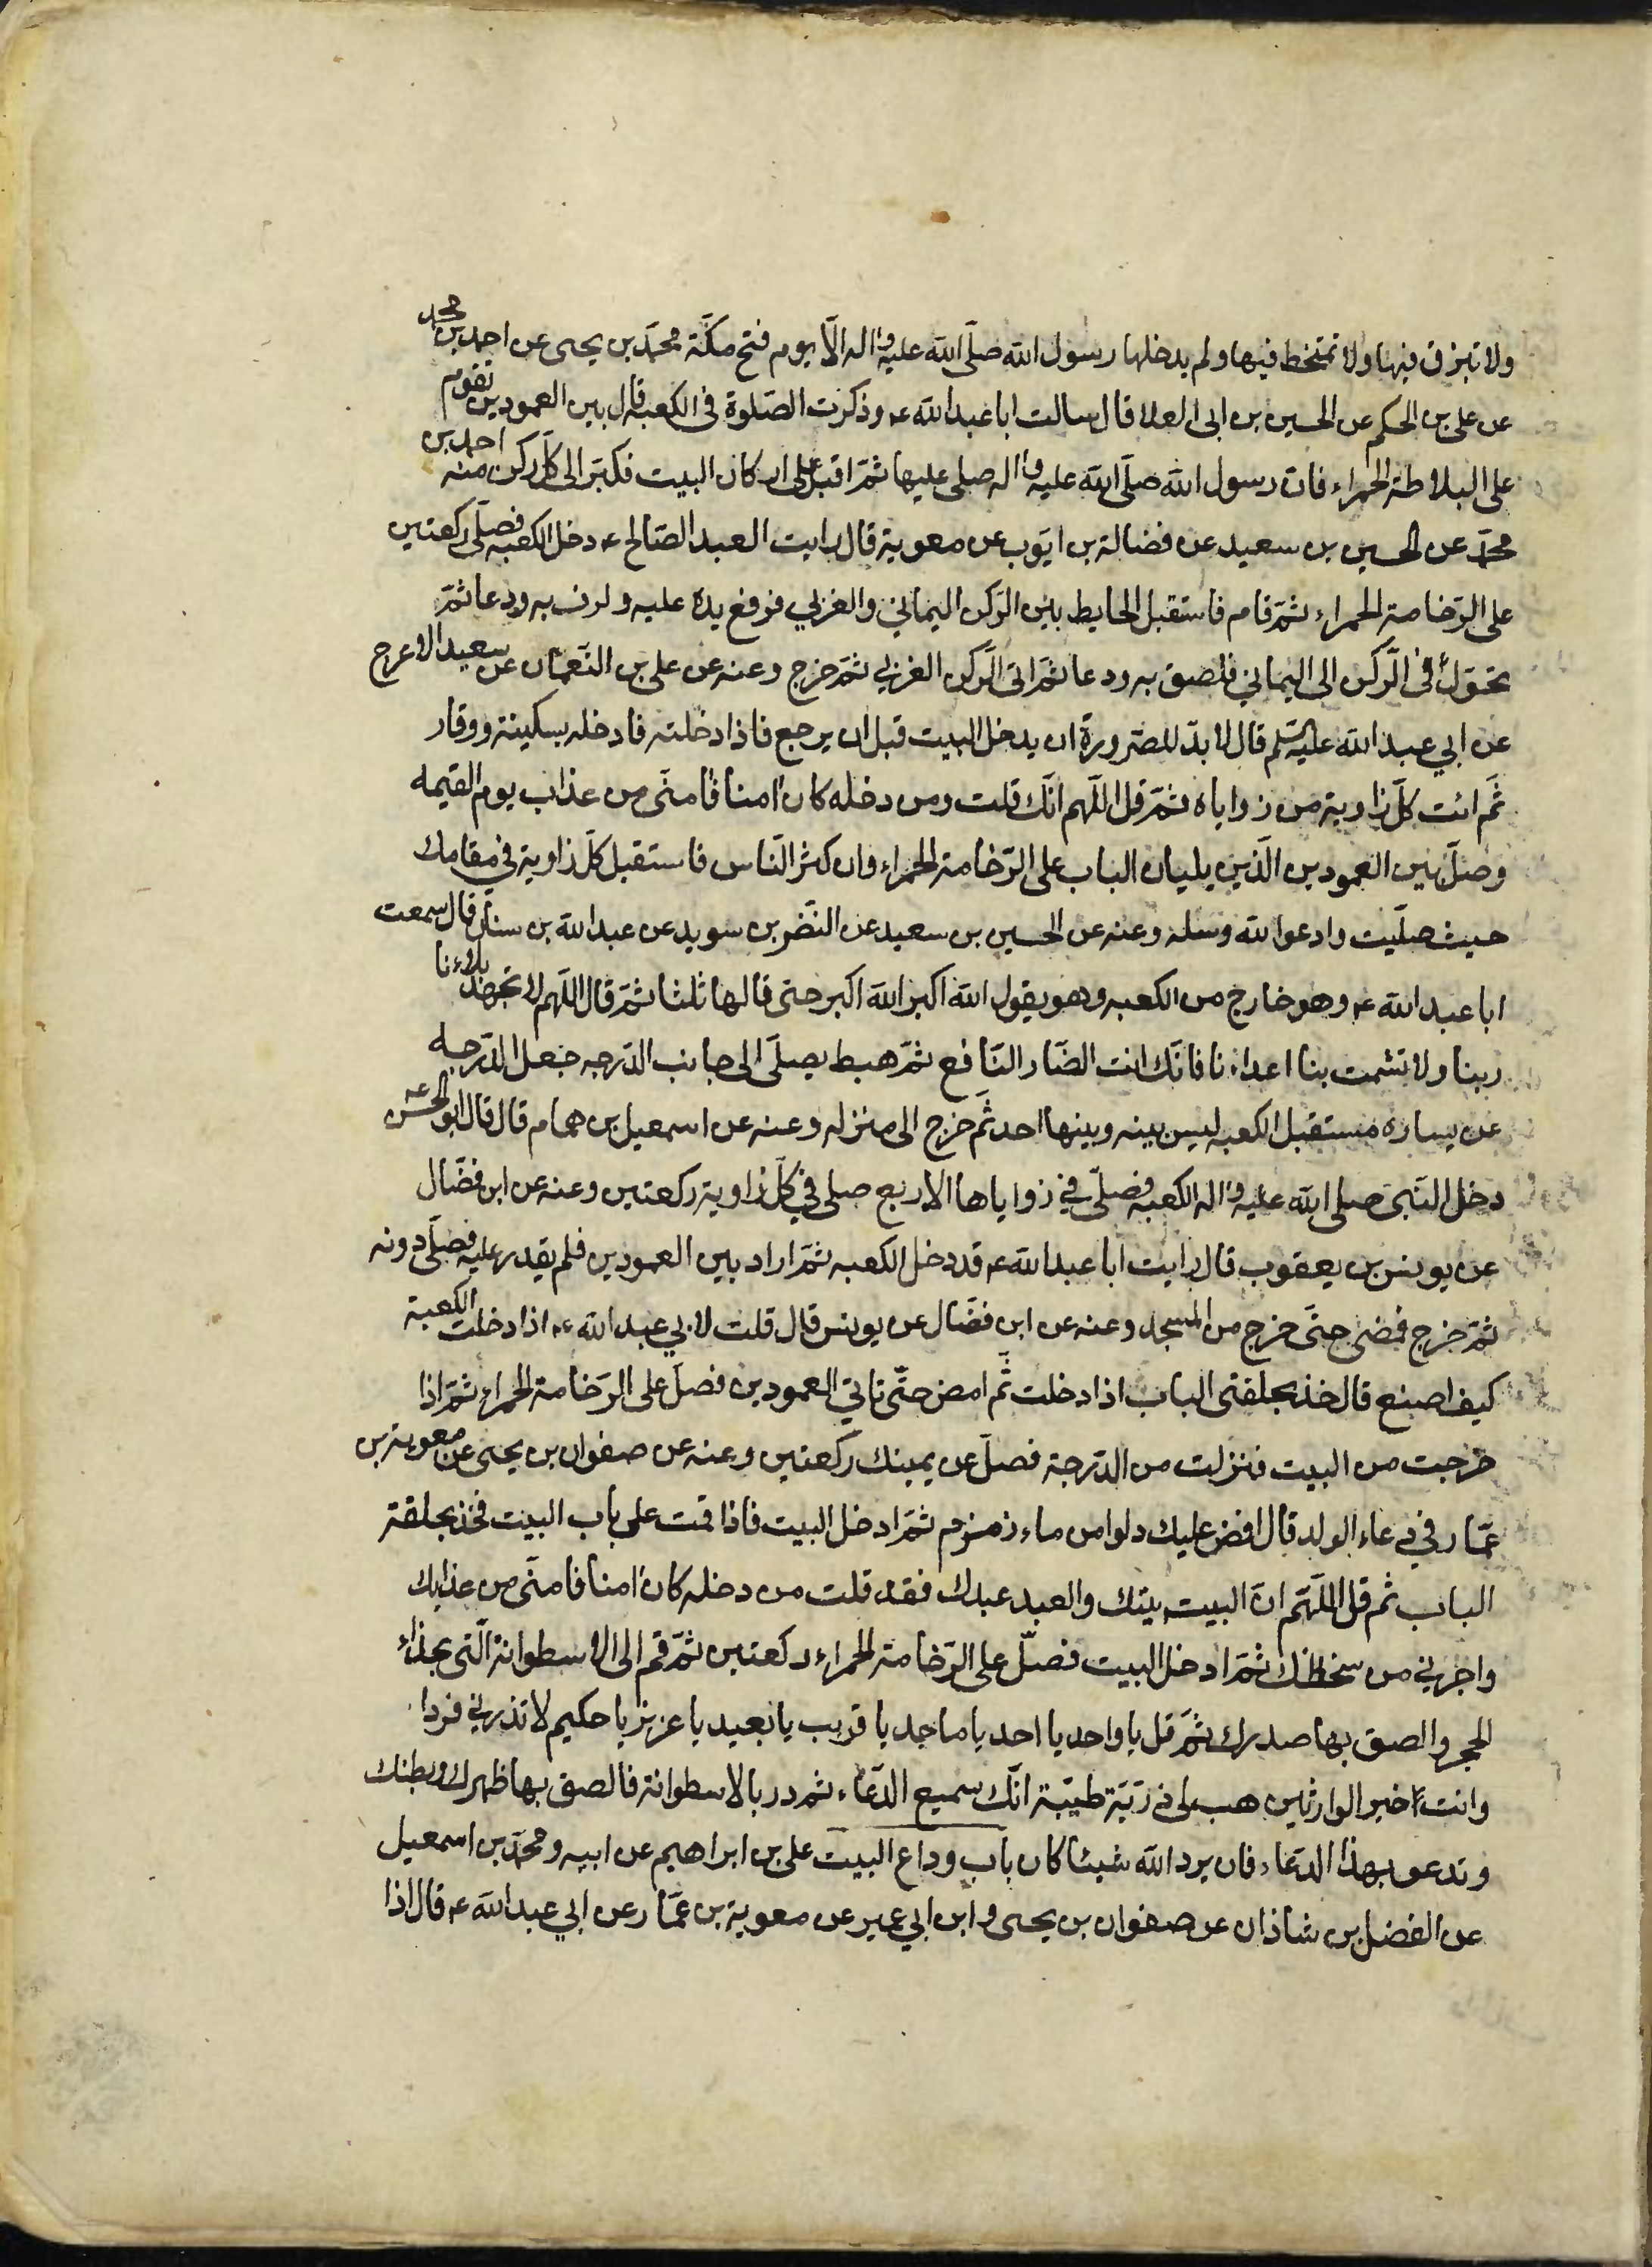 ولا تبزق فيها ولا تمتخط فيها ولم يدخلها رسول الله صلّى الله عليه واله الّا يوم فتح مكّة محمّد بن يحيى عن احمد بن محمد
عن على بن الحكم عن الحسين بن ابى العلا قال سالت ابا عبد الله ع وذكرت الصّلوة فى الكعبه قال بين العمودين تقوم
على البلاطة الحمراء فان رسول الله صلّى الله عليه واله صلى عليها ثمّ اقبل على اركان البيت فكبّر الى كلّ ركن منه احمد بن
محمّد عن الحسين بن سعيد عن فضالة بن ايّوب عن معوية قال رايت العبد الصّالح ع دخل الكعبه فصلّى ركعتين
على الرّخامة الحمراء ثمّ قام فاستقبل الحايط بين الرّكن اليماني والغربي فرفع يده عليه ولزق به ودعا ثمّ
تحوّل الى الرّكن الى اليماني فلصق به ودعا ثمّ اتى الرّكن الغربي ثمّ خرج وعنه عن على بن النّعمان عن سعيد الاعرج
عن ابي عبد الله عليه السّلم قال لا بدّ للصّرورة ان يدخل البيت قبل ان يرجع فاذا دخلته فادخله بسكينة ووقار
ثمّ ائت كلّ زاوية من زواياه ثمّ قل اللّهم انّك قلت ومن دخله كان امنا فامنّى من عذاب يوم القيمه
وصلّ بين العمودين الّذين يليان الباب على الرّخامة الحمراء وان كثر النّاس فاستقبل كلّ زاوية في مقامك
حيث صلّيت وادعوا الله وسله وعنه عن الحسين بن سعيد عن النّضر بن سويد عن عبد الله بن سنان قال سمعت
ابا عبد الله ع وهو خارج من الكعبه وهو يقول الله اكبر الله اكبر حتى قالها ثلثا ثمّ قال اللّهم لا تجهد بلاءنا
ربنا ولا تشمت بنا اعداءنا فانّك انت الضّار النّافع ثمّ هبط يصلّى الى جانب الدّرجه جعل الدّرجه
عن يساره مستقبل الكعبه ليس بينه وبينها احد ثمّ خرج الى منزله وعنه عن اسمعيل بن همام قال قال ابو الحسن ع
دخل النّبى صلى الله عليه واله الكعبه فصلّى في زواياها الاربع صلى في كلّ زاوية ركعتين وعنه عن ابن فضّال
عن يونس بن يعقوب قال رايت ابا عبد الله ع قد دخل الكعبه ثمّ اراد بين العمودين فلم يقدر عليه فصلّى دونه
ثمّ خرج فمضى حتّى خرج من المسجد وعنه عن ابن فضّال عن يونس قال قلت لابي عبد الله ع اذا دخلت الكعبة
كيف اصنع قال خذ بحلقتى الباب اذا دخلت ثّم امض حتّى تاتي العمودين فصلّ على الرّخامة الحمراء ثمّ اذا
خرجت من البيت فنزلت من الدّرجة فصلّ عن يمينك ركعتين وعنه عن صفوان بن يحيى عن معوية بن
عمّار في دعاء الولد قال افض عليك دلوا من ماء زمزم ثمّ ادخل البيت فاذا قمت على باب البيت فخذ بحلقة
الباب ثم قل اللّهمّ انّ البيت بيتك والعبد عبدك فقد قلت من دخله كان امنا فامنّى من عذابك
واجرني من سخطك ثمّ ادخل البيت فصلّ على الرّخامة الحمراء ركعتين ثمّ قم الى الاسطوانة الّتى بحذاء
الحجر والصق بها صدرك ثمّ قل يا واحد يا احد يا ماجد يا قريب يا بعيد يا عزيز يا حكيم لا تذرني فردا
وانت خير الوارثين هب لى ذرّيّة طيّبة انّك سميع الدّعاء ثم در بالاسطوانة فالصق بها ظهرك وبطنك
وتدعو بهذا الدّعاء فان يرد الله شيئا كان باب وداع البيت على بن ابراهيم عن ابيه ومحمّد بن اسمعيل
عن الفضل بن شاذان عن صفوان بن يحيى وابن ابي عمير عن معوية بن عمّار عن ابي عبد الله ع قال اذا